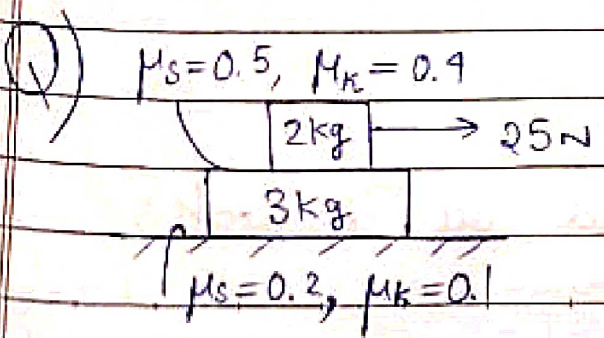 Q) μs=0.5, μK=0.4
2kg → 25N
3kg
μs=0.2, μK=0.1